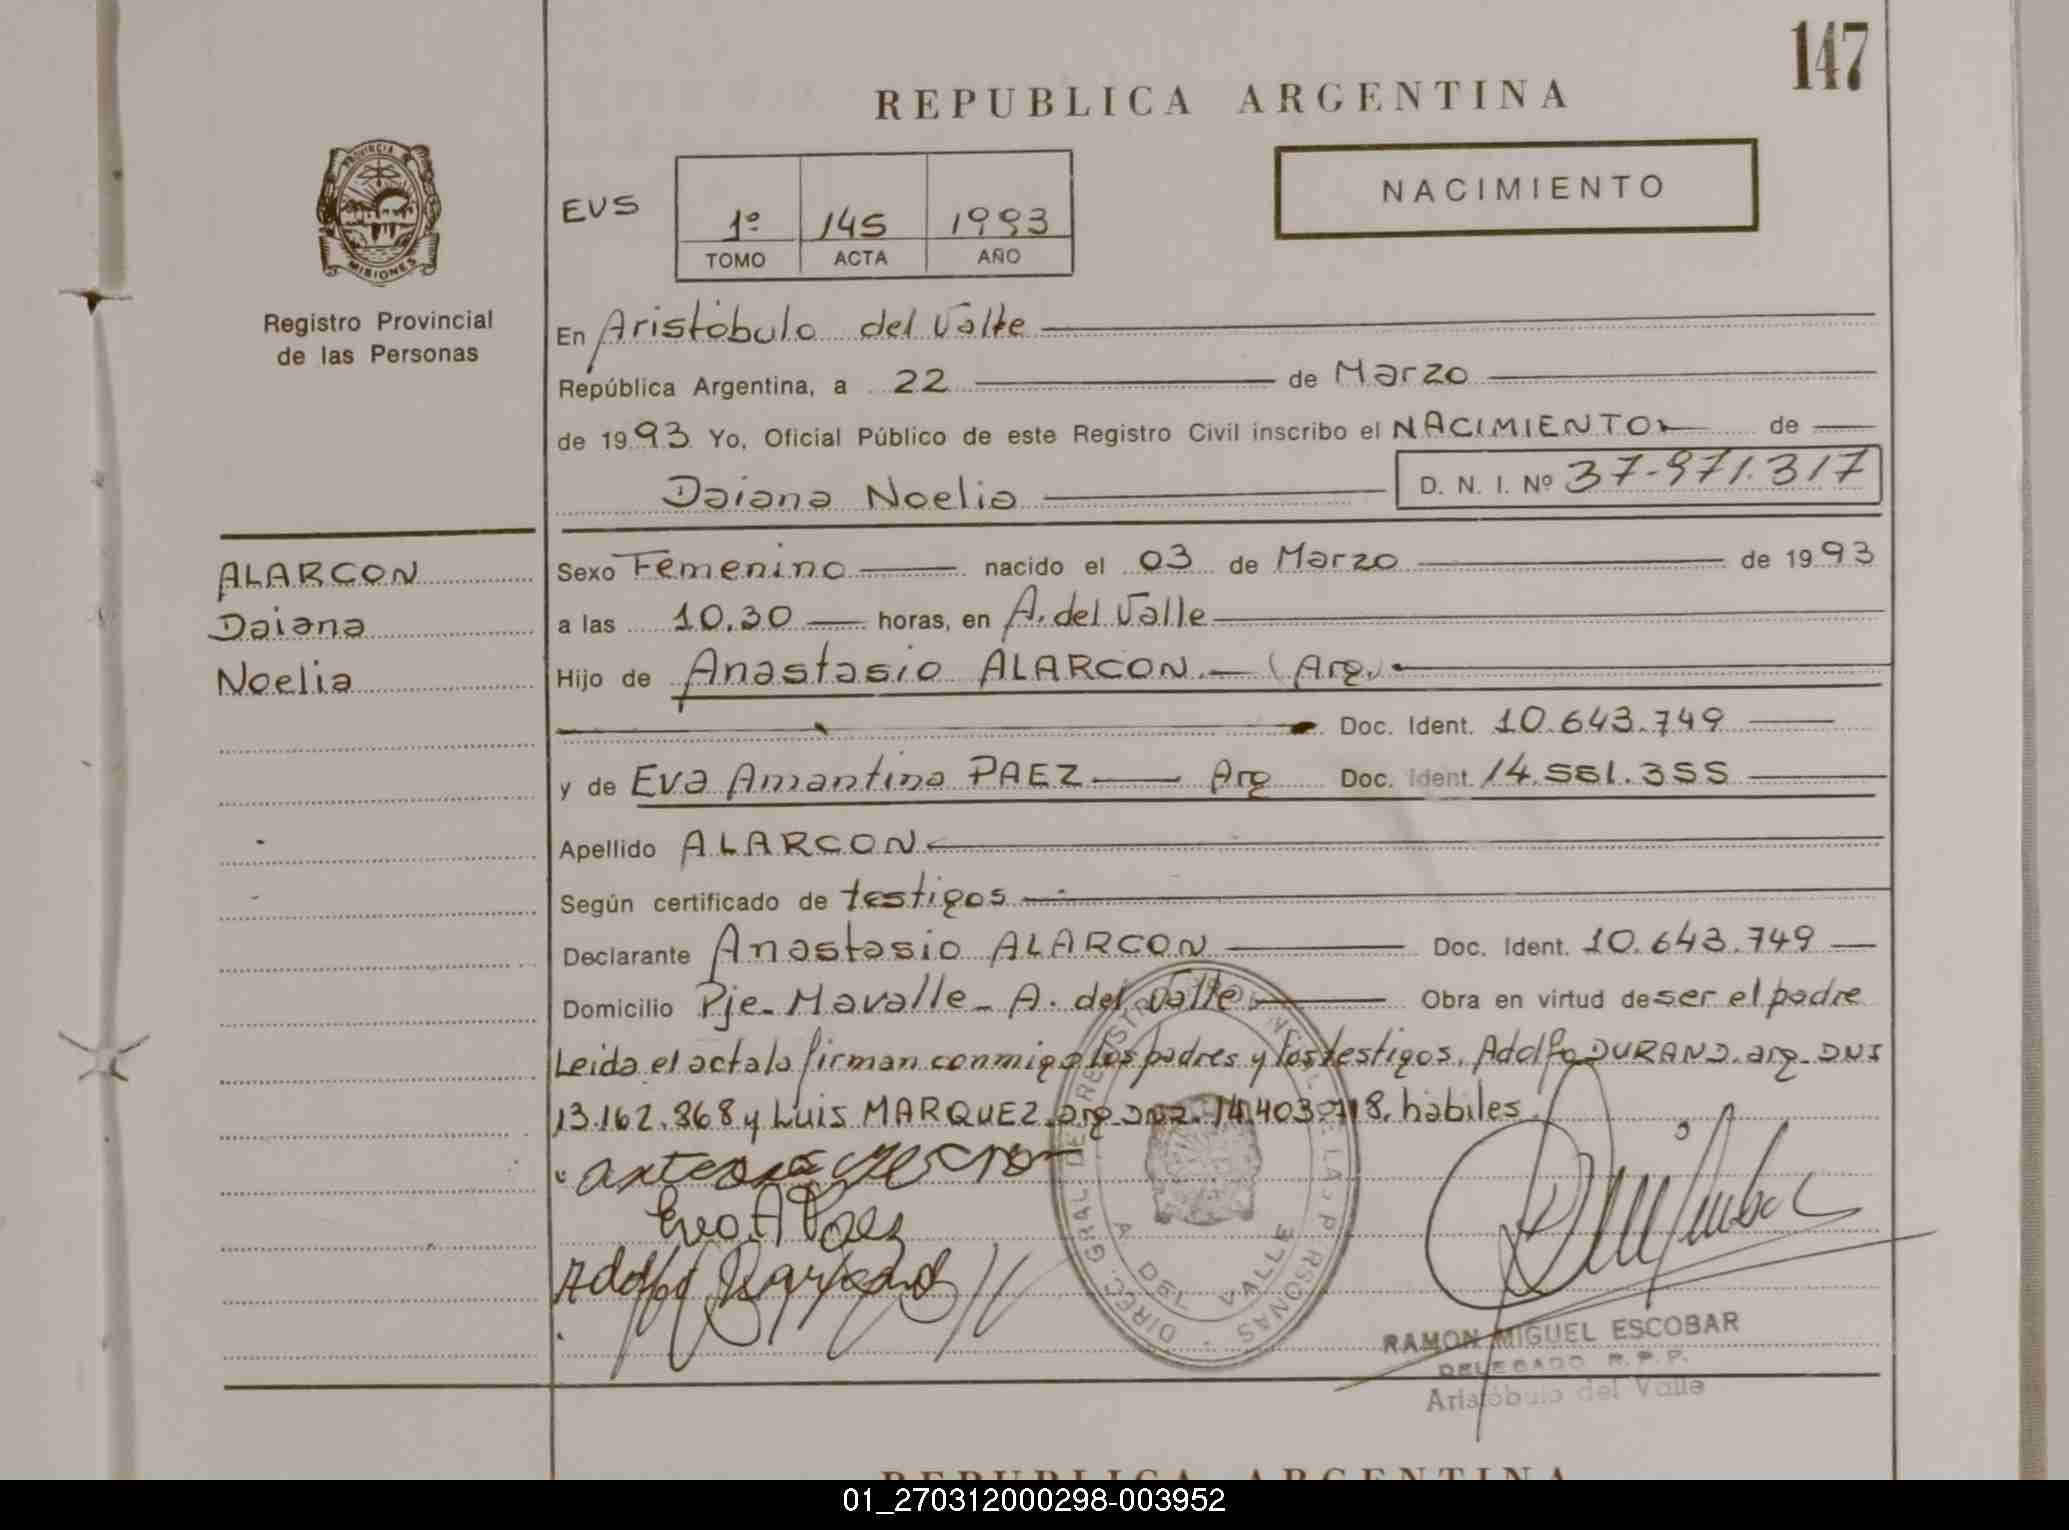 147
REPUBLICA ARGENTINA
PROVINCIA
MISIONES
NACIMIENTO
EVS
1º 145 1993
TOMO ACTA AÑO
Registro Provincial
de las Personas
En Aristóbulo del Valle
República Argentina, a 22 de Marzo
de 1993 Yo, Oficial Público de este Registro Civil inscribo el NACIMIENTO de
Daiana Noelia D. N. I. Nº 37-971.317
ALARCON
Daiana
Noelia
Sexo Femenino nacido el 03 de Marzo de 1993
a las 10.30 horas, en A. del Valle
Hijo de Anastasio ALARCON.- (Arg.)
Doc. Ident. 10.643.749
y de Eva Amantina PAEZ Arg Doc. Ident. 14.551.355
Apellido ALARCON
Según certificado de testigos
Declarante Anastasio ALARCON Doc. Ident. 10.643.749
Domicilio Pje. Mavalle - A. del Valle Obra en virtud de ser el padre
Leida el acta la firman conmigo los padres y los testigos, Adolfo DURAND. arg. DNI
13.162.868 y Luis MARQUEZ. arg. DNI. 14.403.718. hábiles
Eva A Paez
Adolfo
DIREC. GRAL DE REGISTRO PROVINCIAL DE LA. PERSONAS
A DEL VALLE
RAMON MIGUEL ESCOBAR
DELEGADO R. P. P.
Aristóbulo del Valle
REPUBLICA ARGENTINA
01_270312000298-003952